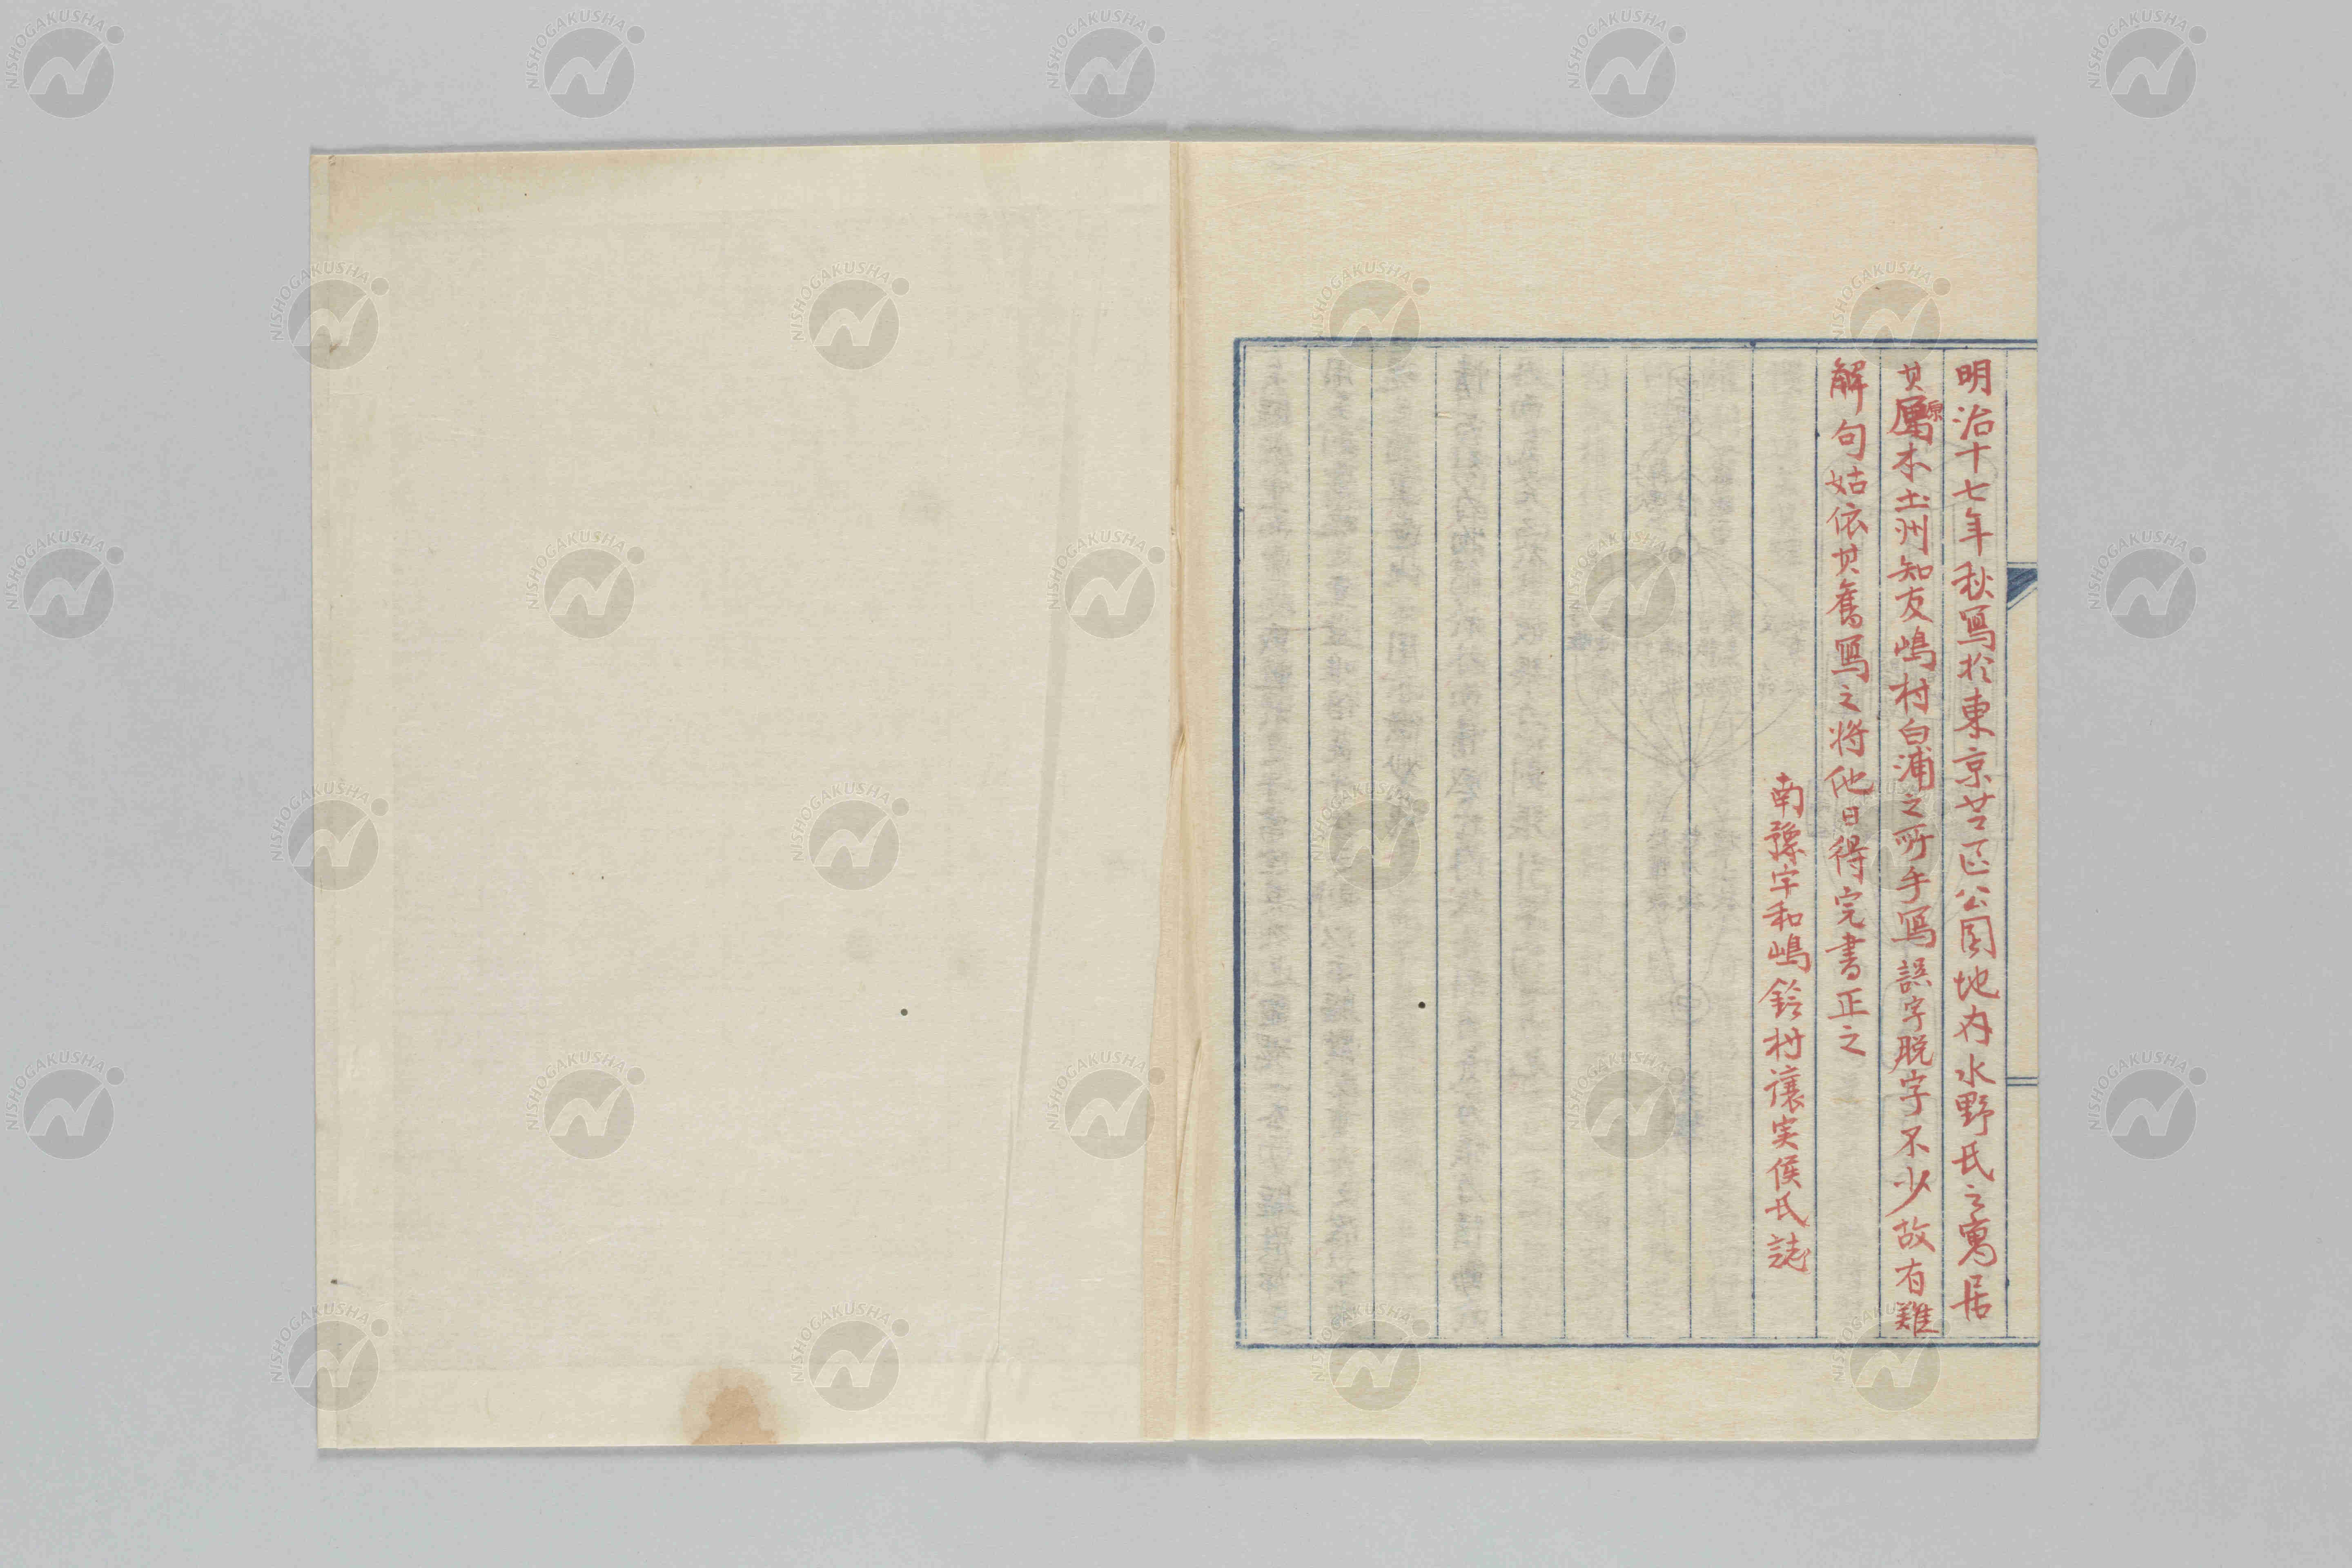 明治十七年秋写於東京芝区公園地内水野氏之寓居
其原本土州知友嶋村白浦之所手写誤字脱字不少故有難
解句姑依其舊写之将他日得完書正之
南豫宇和嶋鈴村譲実侯氏誌
NISHOGAKUSHA